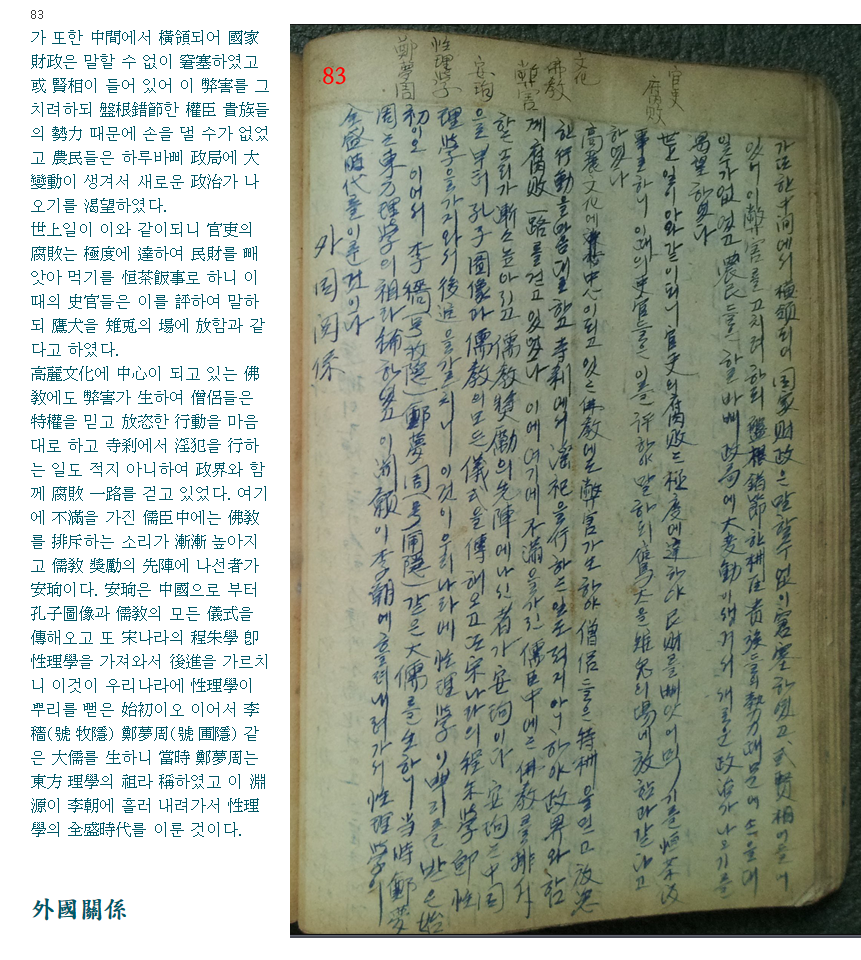 83
가 또한 中間에서 橫領되어 國家
財政은 말할 수 없이 窘塞하였고
或 賢相이 들어 있어 이 弊害를 그
치려하되 盤根錯節한 權臣 貴族들
의 勢力 때문에 손을 델 수가 없었
고 農民들은 하루바삐 政局에 大
變動이 생겨서 새로운 政治가 나
오기를 渴望하였다.
世上일이 이와 같이되니 官吏의
腐敗는 極度에 達하여 民財를 빼
앗아 먹기를 恒茶飯事로 하니 이
때의 史官들은 이를 評하여 말하
되 鷹犬을 雉兎의 場에 放함과 같
다고 하였다.
高麗文化에 中心이 되고 있는 佛
敎에도 弊害가 生하여 僧侶들은
特權을 믿고 放恣한 行動을 마음
대로 하고 寺刹에서 淫犯을 行하
는 일도 적지 아니하여 政界와 함
께 腐敗 一路를 걷고 있었다. 여기
에 不滿을 가진 儒臣中에는 佛敎
를 排斥하는 소리가 漸漸 높아지
고 儒敎 獎勵의 先陣에 나선者가
安珦이다. 安珦은 中國으로 부터
孔子圖像과 儒敎의 모든 儀式을
傳해오고 또 宋나라의 程朱學 卽
性理學을 가져와서 後進을 가르치
니 이것이 우리나라에 性理學이
뿌리를 뻗은 始初이오 이어서 李
穡(號 牧隱) 鄭夢周(號 圃隱) 같
은 大儒를 生하니 當時 鄭夢周는
東方 理學의 祖라 稱하였고 이 淵
源이 李朝에 흘러 내려가서 性理
學의 全盛時代를 이룬 것이다.
外國關係
83
官吏
腐敗
文化
佛敎
弊害
安珦
性理學
鄭夢周
가 또한 中間에서 橫領되어 国家財政은 말할수없이 窘塞하였고 或 賢相이 들어
있어 이 弊害를 고치려하되 盤根錯節한 權臣 貴族들의 勢力때문에 손을 대
일수가 없었고 農民들은 할바삐 政局에 大変動이 생겨서 새로운 政治가 나오기를
渴望하였다
世上일이 이와같이되니 官吏의 腐敗는 極度에 達하야 民財를 빼앗어먹기를 恒茶飯
事로하니 이때의 史官들은 이를 評하야 말하되 鷹犬을 雉兎의 場에 放함과 같다고
하였다
高麗文化에 中心이되고 있는 佛敎에도 弊害가 生하야 僧侶들은 特權을 믿고 放恣
한 行動을 마음대로 하고 寺刹에서 淫祀를 行하는 일도 적지 아니하야 政界와 함
께 腐敗 一路를 걷고 있었다 이에 여기에 不滿을 가진 儒臣中에는 佛敎를 排斥
하는 소리가 漸々 높아지고 儒敎 獎勵의 先陣에 나선 者가 安珦이다 安珦은 中国
을 부터 孔子圖像과 儒敎의 모든 儀式을 傳해오고 또 宋나라의 程朱學 卽 性
理學을 가지와서 後進을 가르치니 이것이 우리나라에 性理學이 뿌리를 받은 始
初이오 이어서 李穡(号 牧隱) 鄭夢周(号 圃隱) 같은 大儒를 生하니 当時 鄭夢
周는 東方理學의 祖라 稱하였고 이 淵源이 李朝에 흘러내려가서 性理學의
全盛時代를 이룬 것이다
外国関係